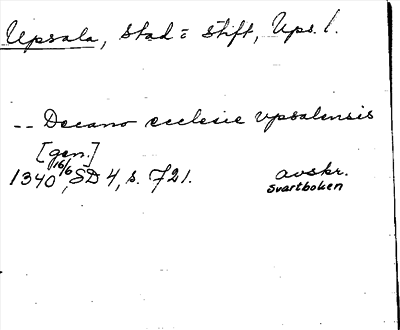 Upsala, stad = stift, Ups. l.
-- Decano ecclesie vpsalensis
[gen.]
1340 16/6, SD 4, s. 721. avskr.
Svartboken